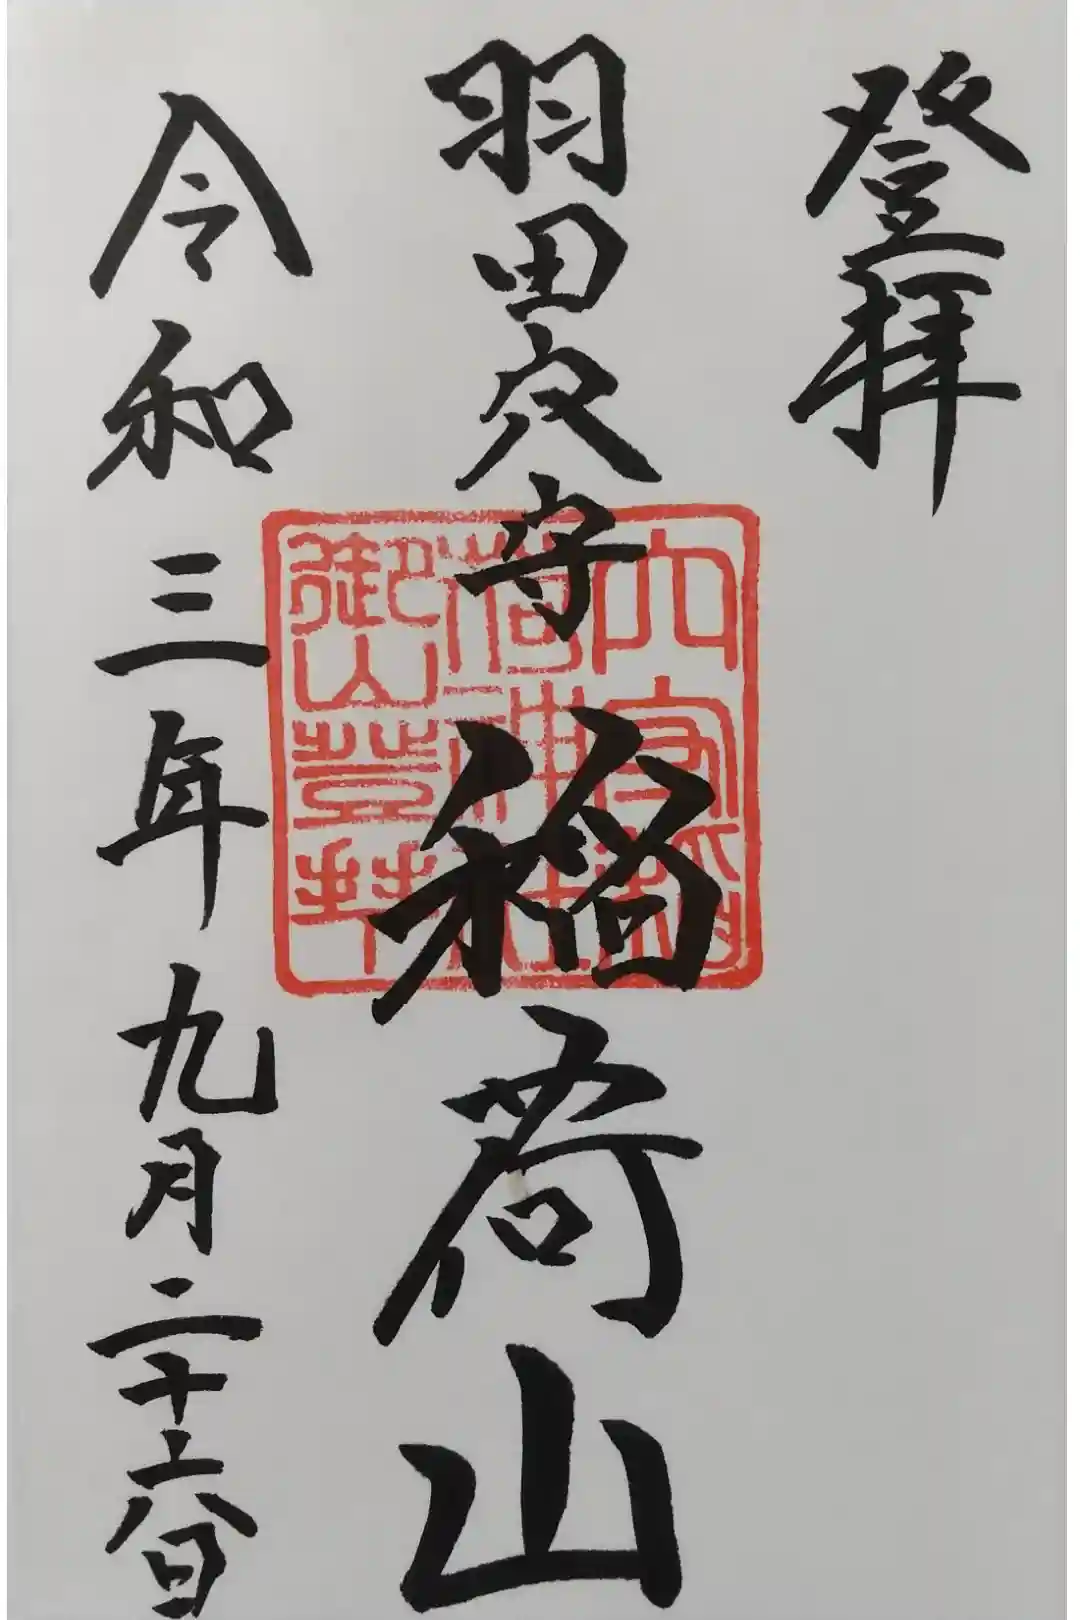 登拝
羽田穴守稲荷山
穴守稲
荷神社
御山登拝
令和三年九月二十六日